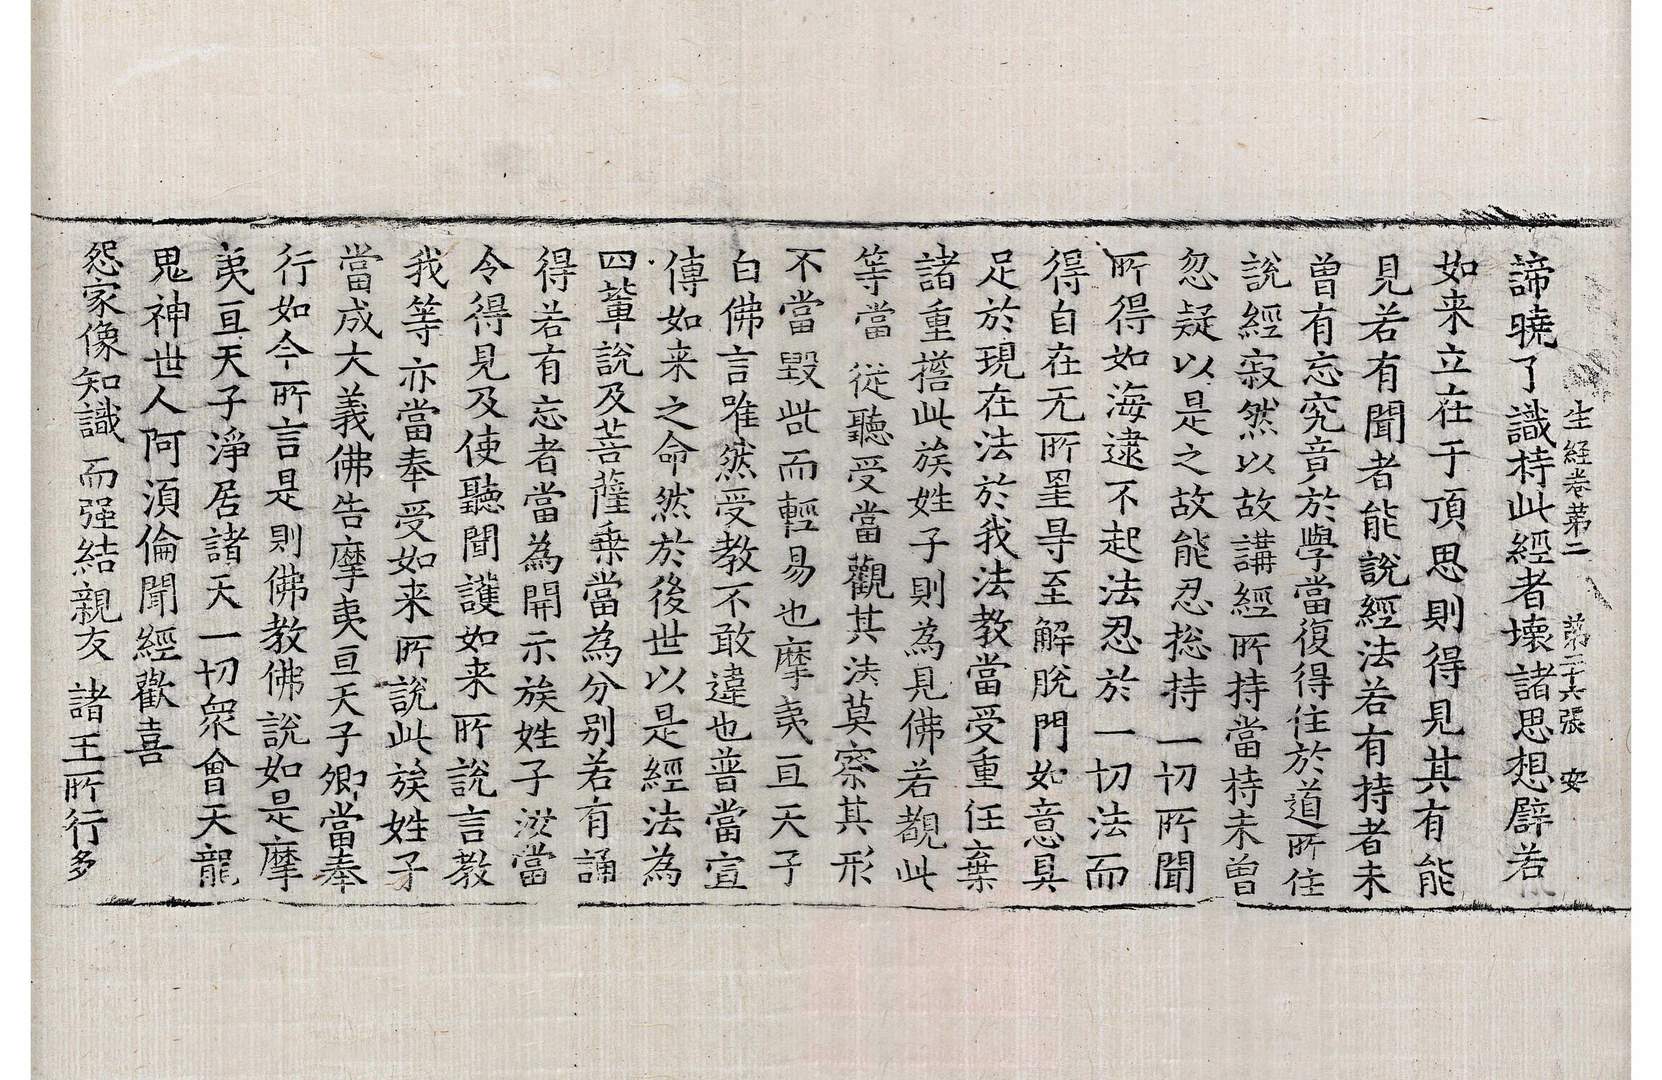 生經卷第二　第二十六張　安
諦曉了識持此經者壞諸思想辟若
如来立在于頂思則得見其有能
見若有聞者能說經法若有持者未
曾有忘究竟於學當復得住於道所住
說經寂然以故講經所持當持未曾
忽疑以是之故能忍揔持一切所聞
所得如海逮不起法忍於一切法而
得自在无所罣㝵至解脫門如意具
足於現在法於我法教當受重任棄
諸重擔此族姓子則為見佛若覩此
等當從聽受當觀其法莫察其形
不當毀呰而輕易也摩夷亘天子
白佛言唯然受教不敢違也普當宣
傳如来之命然於後世以是經法為
四輩說及菩薩乗當為分别若有誦
得若有忘者當為開示族姓子汝當
令得見及使聽聞護如来所說言教
我等亦當奉受如来所說此族姓子
當成大義佛告摩夷亘天子卿當奉
行如今所言是則佛教佛說如是摩
夷亘天子淨居諸天一切衆會天龍
鬼神世人阿湏倫聞經歡喜
怨家像知識而强結親友諸王所行多